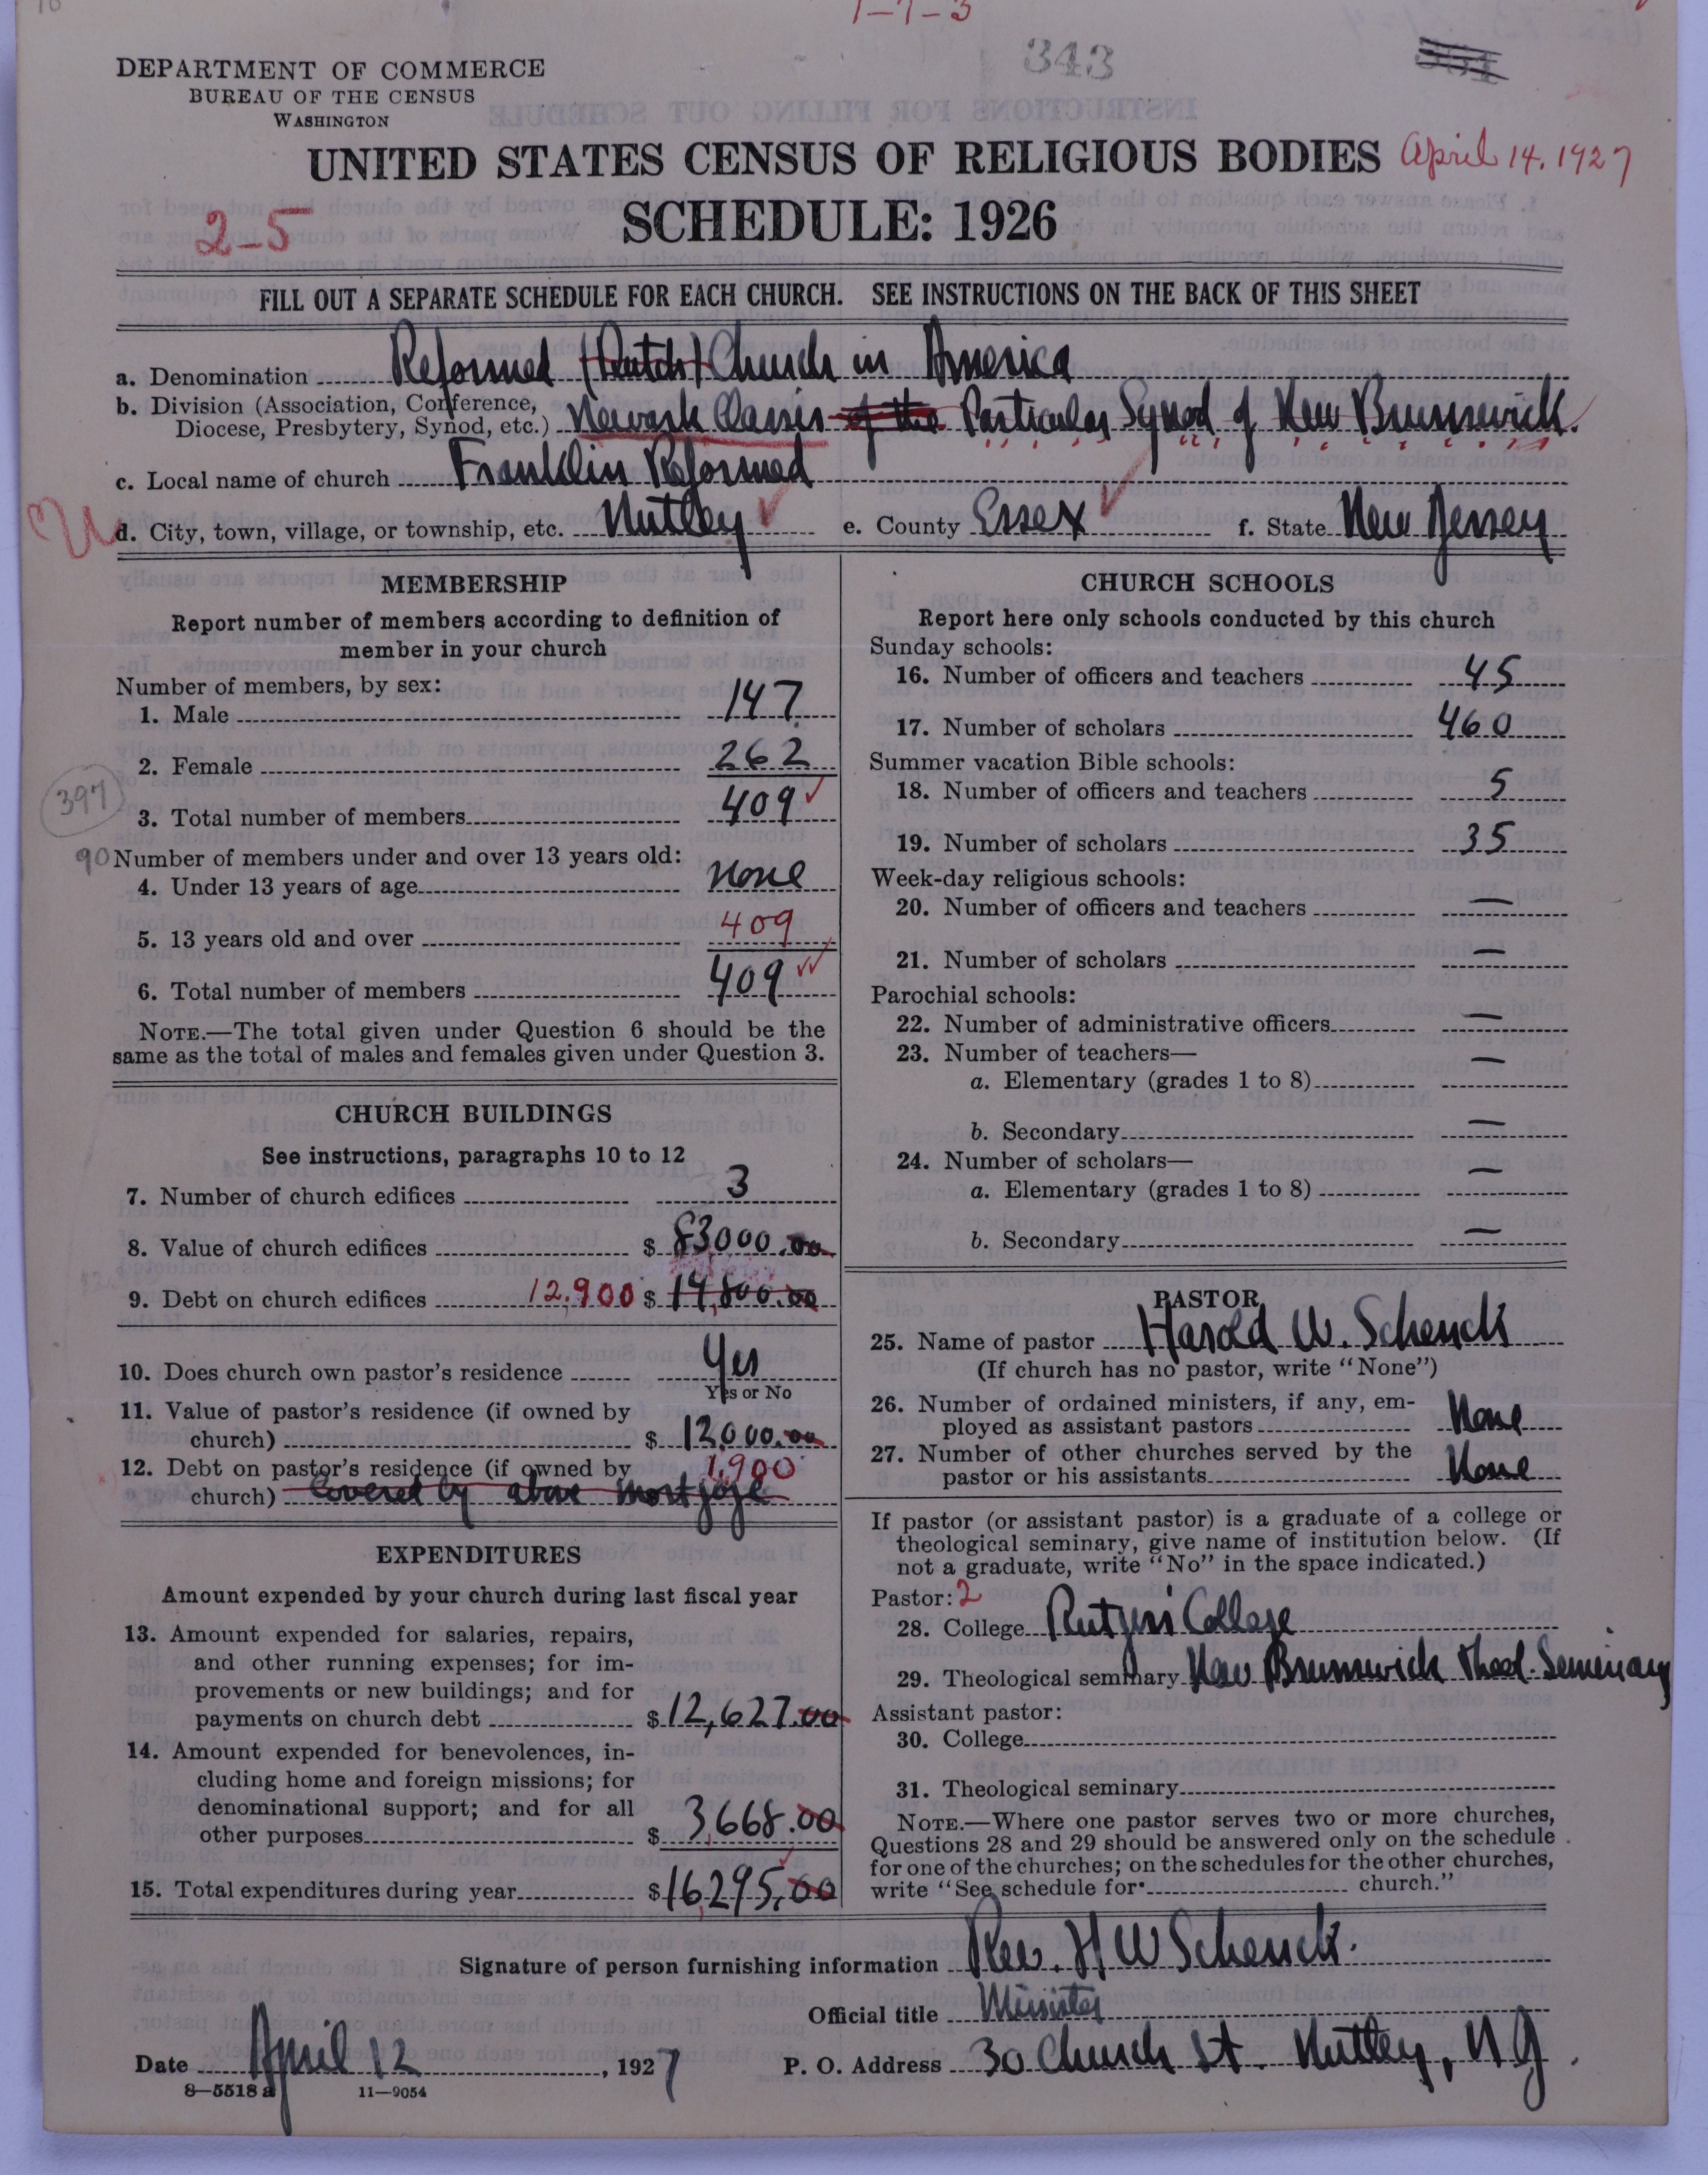 1-7-3
343
DEPARTMENT OF COMMERCE
BUREAU OF THE CENSUS
WASHINGTON
UNITED STATES CENSUS OF RELIGIOUS BODIES April 14, 1927
2-5
SCHEDULE: 1926
FILL OUT A SEPARATE SCHEDULE FOR EACH CHURCH. SEE INSTRUCTIONS ON THE BACK OF THIS SHEET
a. Denomination Reformed (Dutch) Church in America
b. Division (Association, Conference,
Diocese, Presbytery, Synod, etc.) Newark Classis of the Particular Synod of New Brunswick.
c. Local name of church Franklin Reformed
d. City, town, village, or township, etc. Nutley e. County Essex f. State New Jersey
MEMBERSHIP
Report number of members according to definition of
member in your church
Number of members, by sex:
1. Male 147
2. Female 262
397
3. Total number of members 409
90 Number of members under and over 13 years old:
4. Under 13 years of age None
5. 13 years old and over 409
6. Total number of members 409
NOTE.—The total given under Question 6 should be the
same as the total of males and females given under Question 3.
CHURCH BUILDINGS
See instructions, paragraphs 10 to 12
7. Number of church edifices 3
8. Value of church edifices $ 83000.00
9. Debt on church edifices 12,900 $ 14,800.00
10. Does church own pastor's residence Yes
Yes or No
11. Value of pastor's residence (if owned by
church) $ 12,000.00
12. Debt on pastor's residence (if owned by 1,900
church) Covered by above mortgage
EXPENDITURES
Amount expended by your church during last fiscal year
13. Amount expended for salaries, repairs,
and other running expenses; for im-
provements or new buildings; and for
payments on church debt $ 12,627.00
14. Amount expended for benevolences, in-
cluding home and foreign missions; for
denominational support; and for all
other purposes $ 3,668.00
15. Total expenditures during year $ 16,295.00
CHURCH SCHOOLS
Report here only schools conducted by this church
Sunday schools:
16. Number of officers and teachers 45
17. Number of scholars 460
Summer vacation Bible schools:
18. Number of officers and teachers 5
19. Number of scholars 35
Week-day religious schools:
20. Number of officers and teachers —
21. Number of scholars —
Parochial schools:
22. Number of administrative officers —
23. Number of teachers— —
a. Elementary (grades 1 to 8)
b. Secondary —
24. Number of scholars— —
a. Elementary (grades 1 to 8)
b. Secondary —
PASTOR
25. Name of pastor Harold W. Schenck
(If church has no pastor, write "None")
26. Number of ordained ministers, if any, em-
ployed as assistant pastors None
27. Number of other churches served by the
pastor or his assistants None
If pastor (or assistant pastor) is a graduate of a college or
theological seminary, give name of institution below. (If
not a graduate, write "No" in the space indicated.)
Pastor: 2
28. College Rutgers College
29. Theological seminary New Brunswick Theol. Seminary
Assistant pastor:
30. College
31. Theological seminary
NOTE.—Where one pastor serves two or more churches,
Questions 28 and 29 should be answered only on the schedule
for one of the churches; on the schedules for the other churches,
write "See schedule for church."
Signature of person furnishing information Rev. H W Schenck.
Official title Minister
Date April 12, 1927 P. O. Address 30 Church St. Nutley, N J.
8—5518 a 11—9054